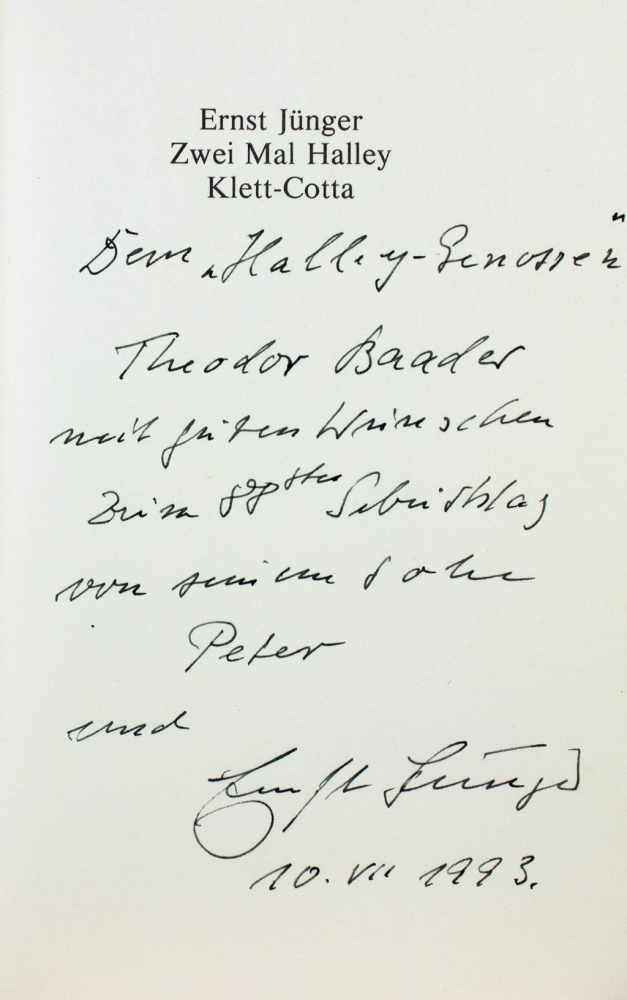 Ernst Jünger
Zwei Mal Halley
Klett-Cotta
Dem „Halley-Genossen“
Theodor Baader
mit guten Wünschen
zum 88sten Geburtstag
von seinem Sohn
Peter
und
Ernst Jünger
10. VII 1993.